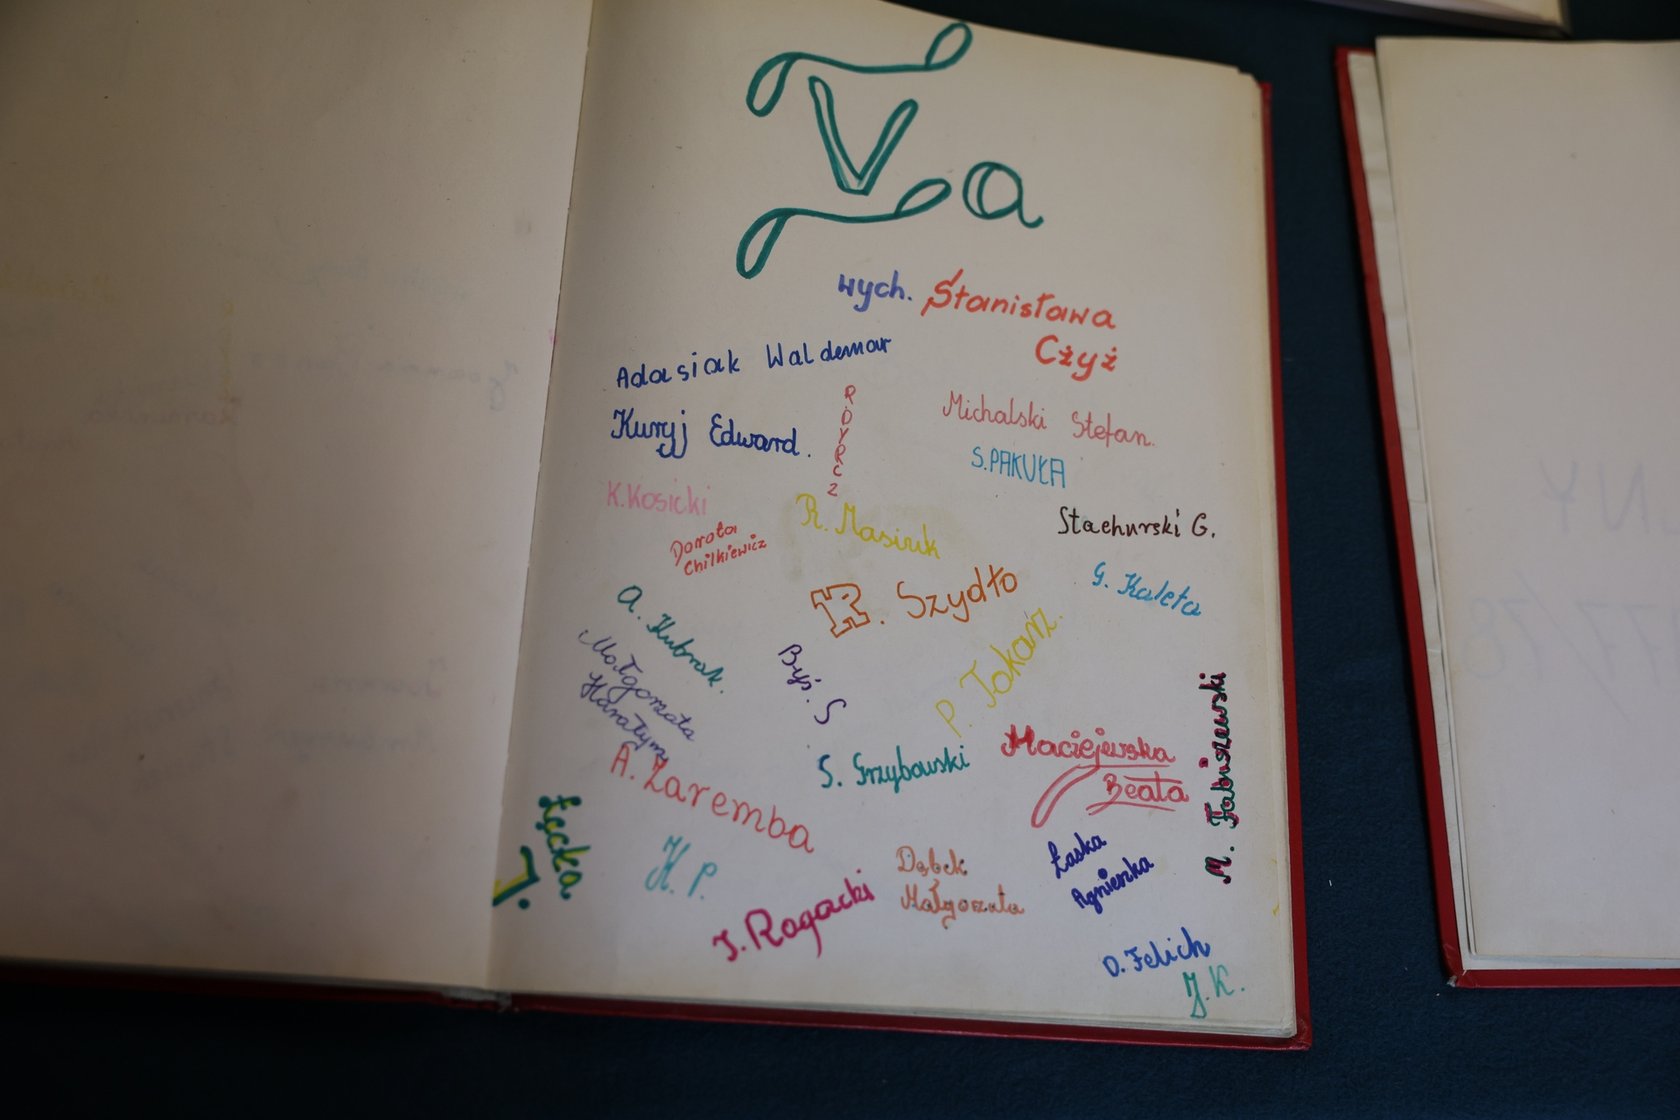 Va
wych. Stanisława
Czyż
Adasiak Waldemar
Kuryj Edward.
RDYRCZ
Michalski Stefan.
S. PAKUŁA
K. Kosicki
R. Masiuk
Stachurski G.
Dorota
Chilkiewicz
R. Szydło
G. Kaleta
A. Kubrak.
Małgorzata
Byś. S
P. Tokarz.
A. Zaremba
S. Grzybowski
Maciejewska
Beata
M. Fabiszewski
Łęcka
J.
K. P.
J. Rogacki
Dąbek
Małgorzata
Łaska
Agnieszka
D. Felich
J. K.